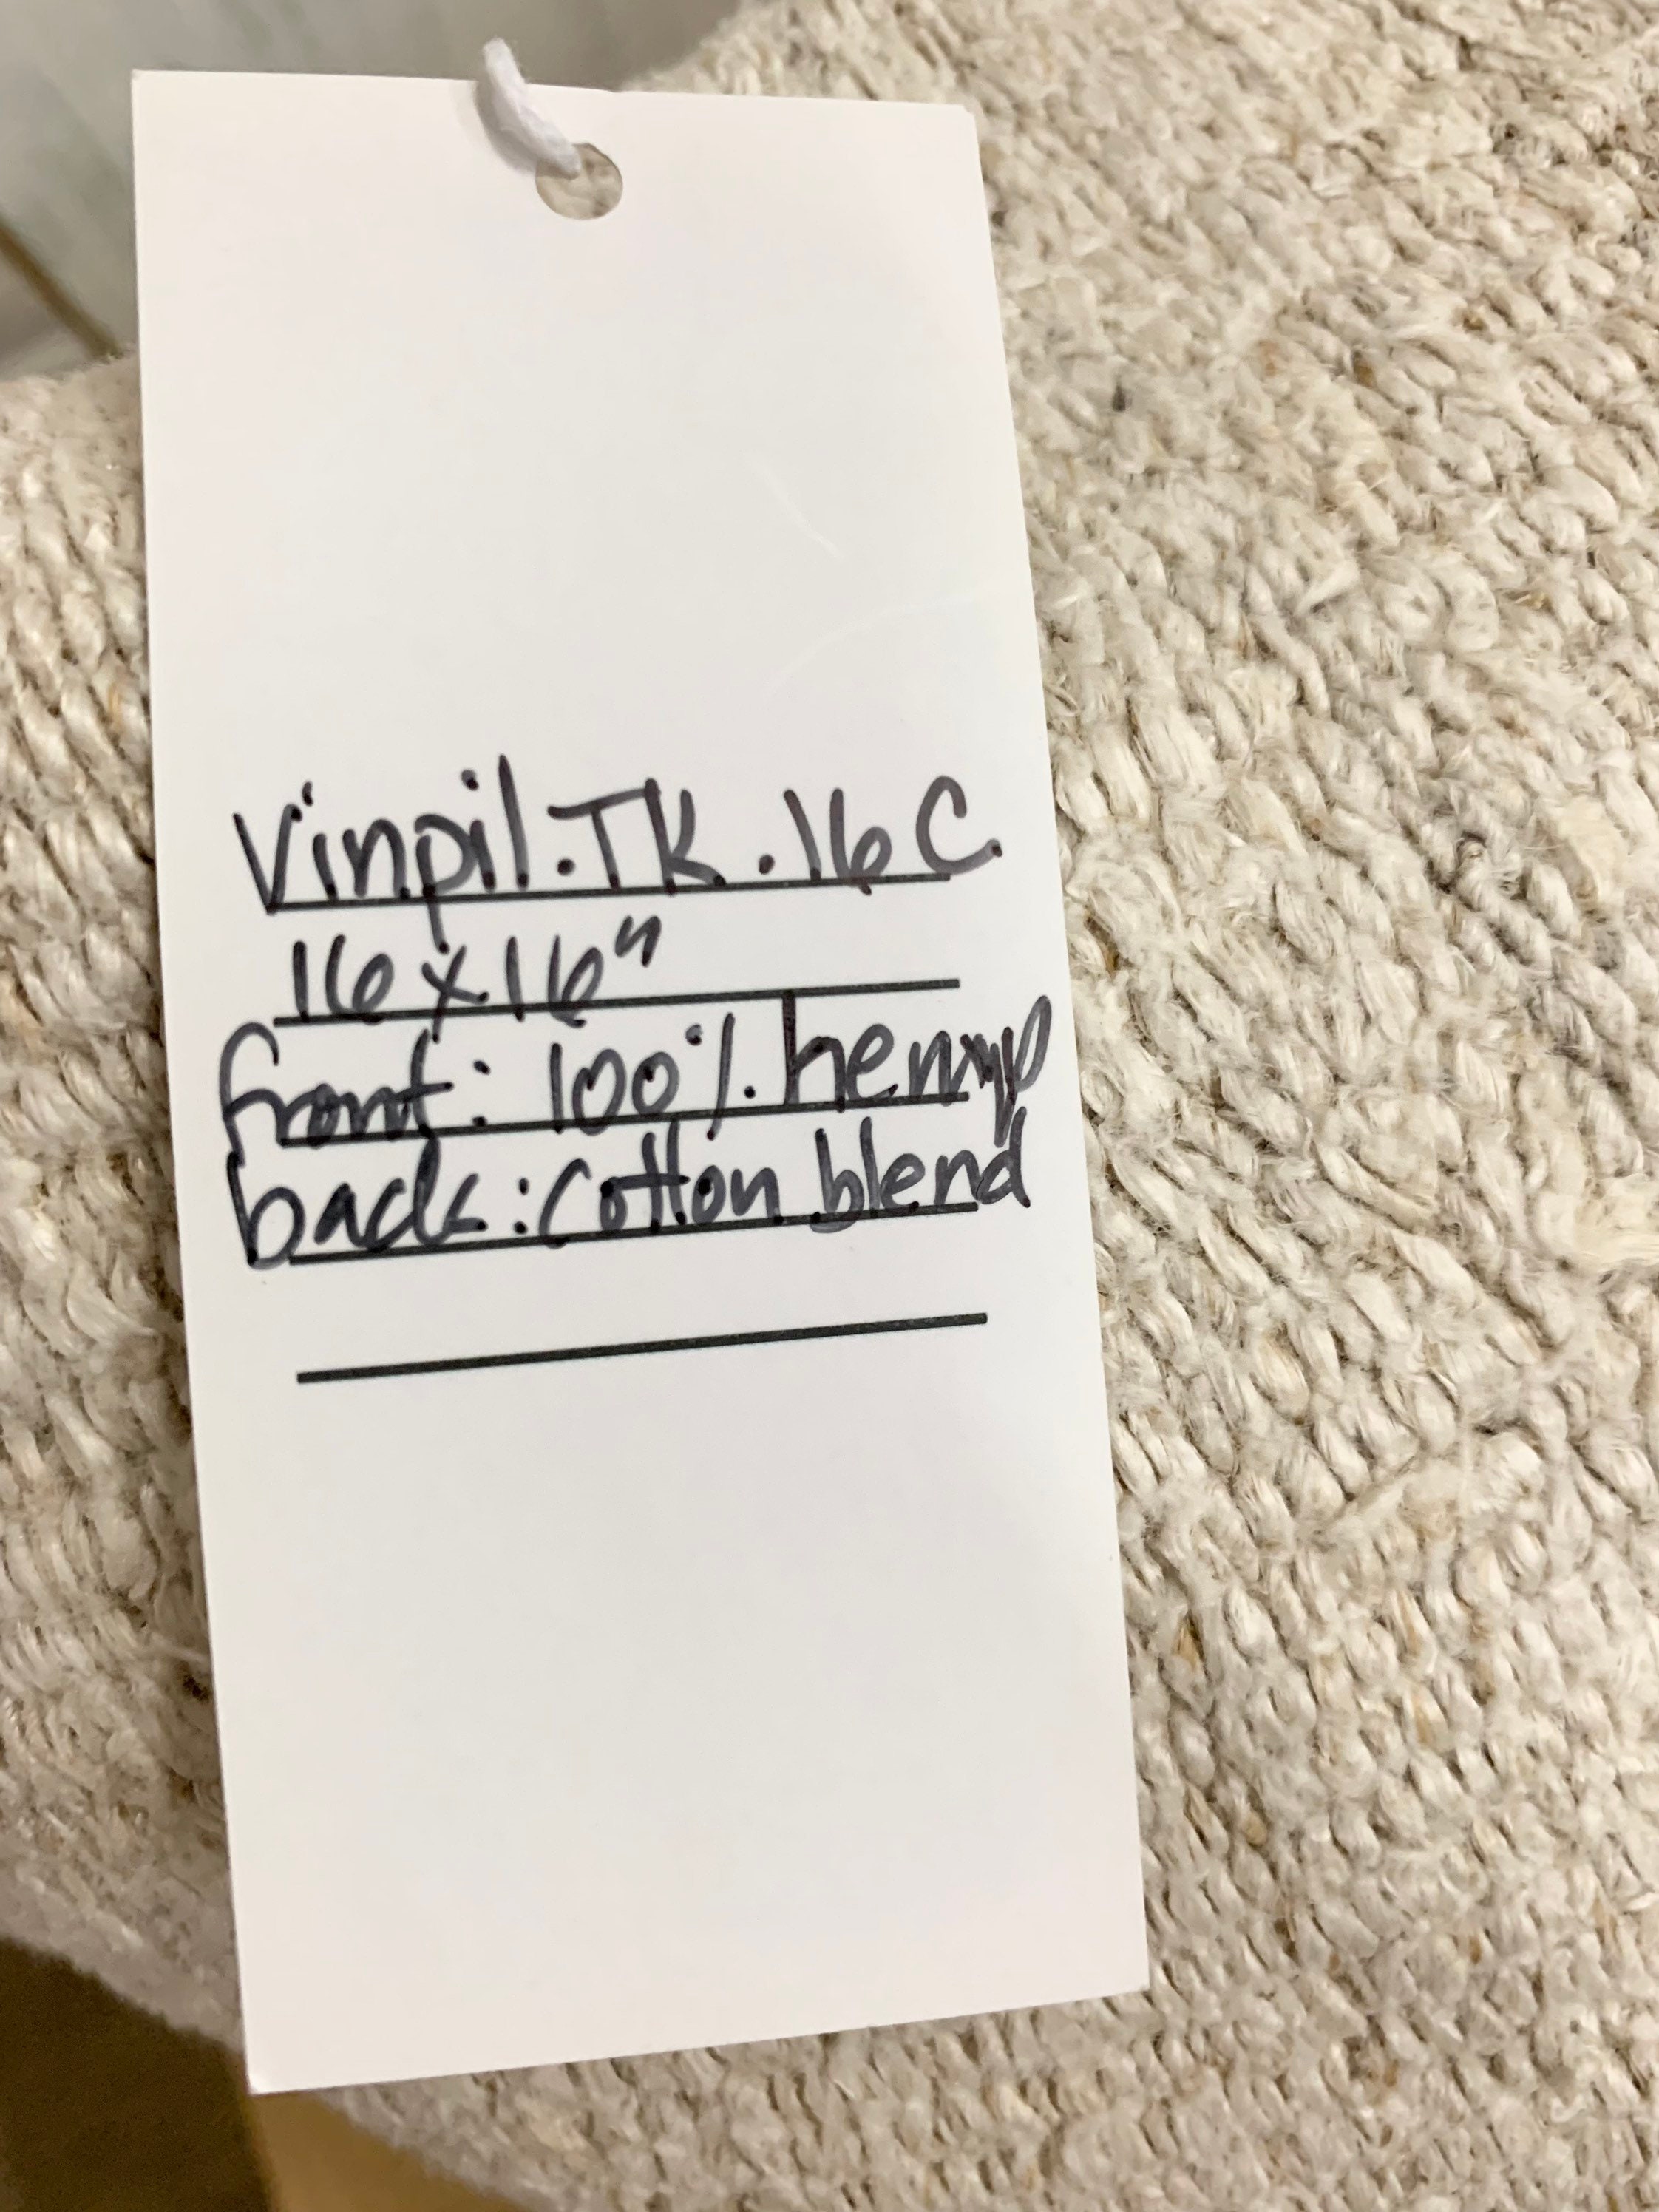 Vinpil.TK.16C.
16x16"
front: 100%. hemp
back: cotton blend